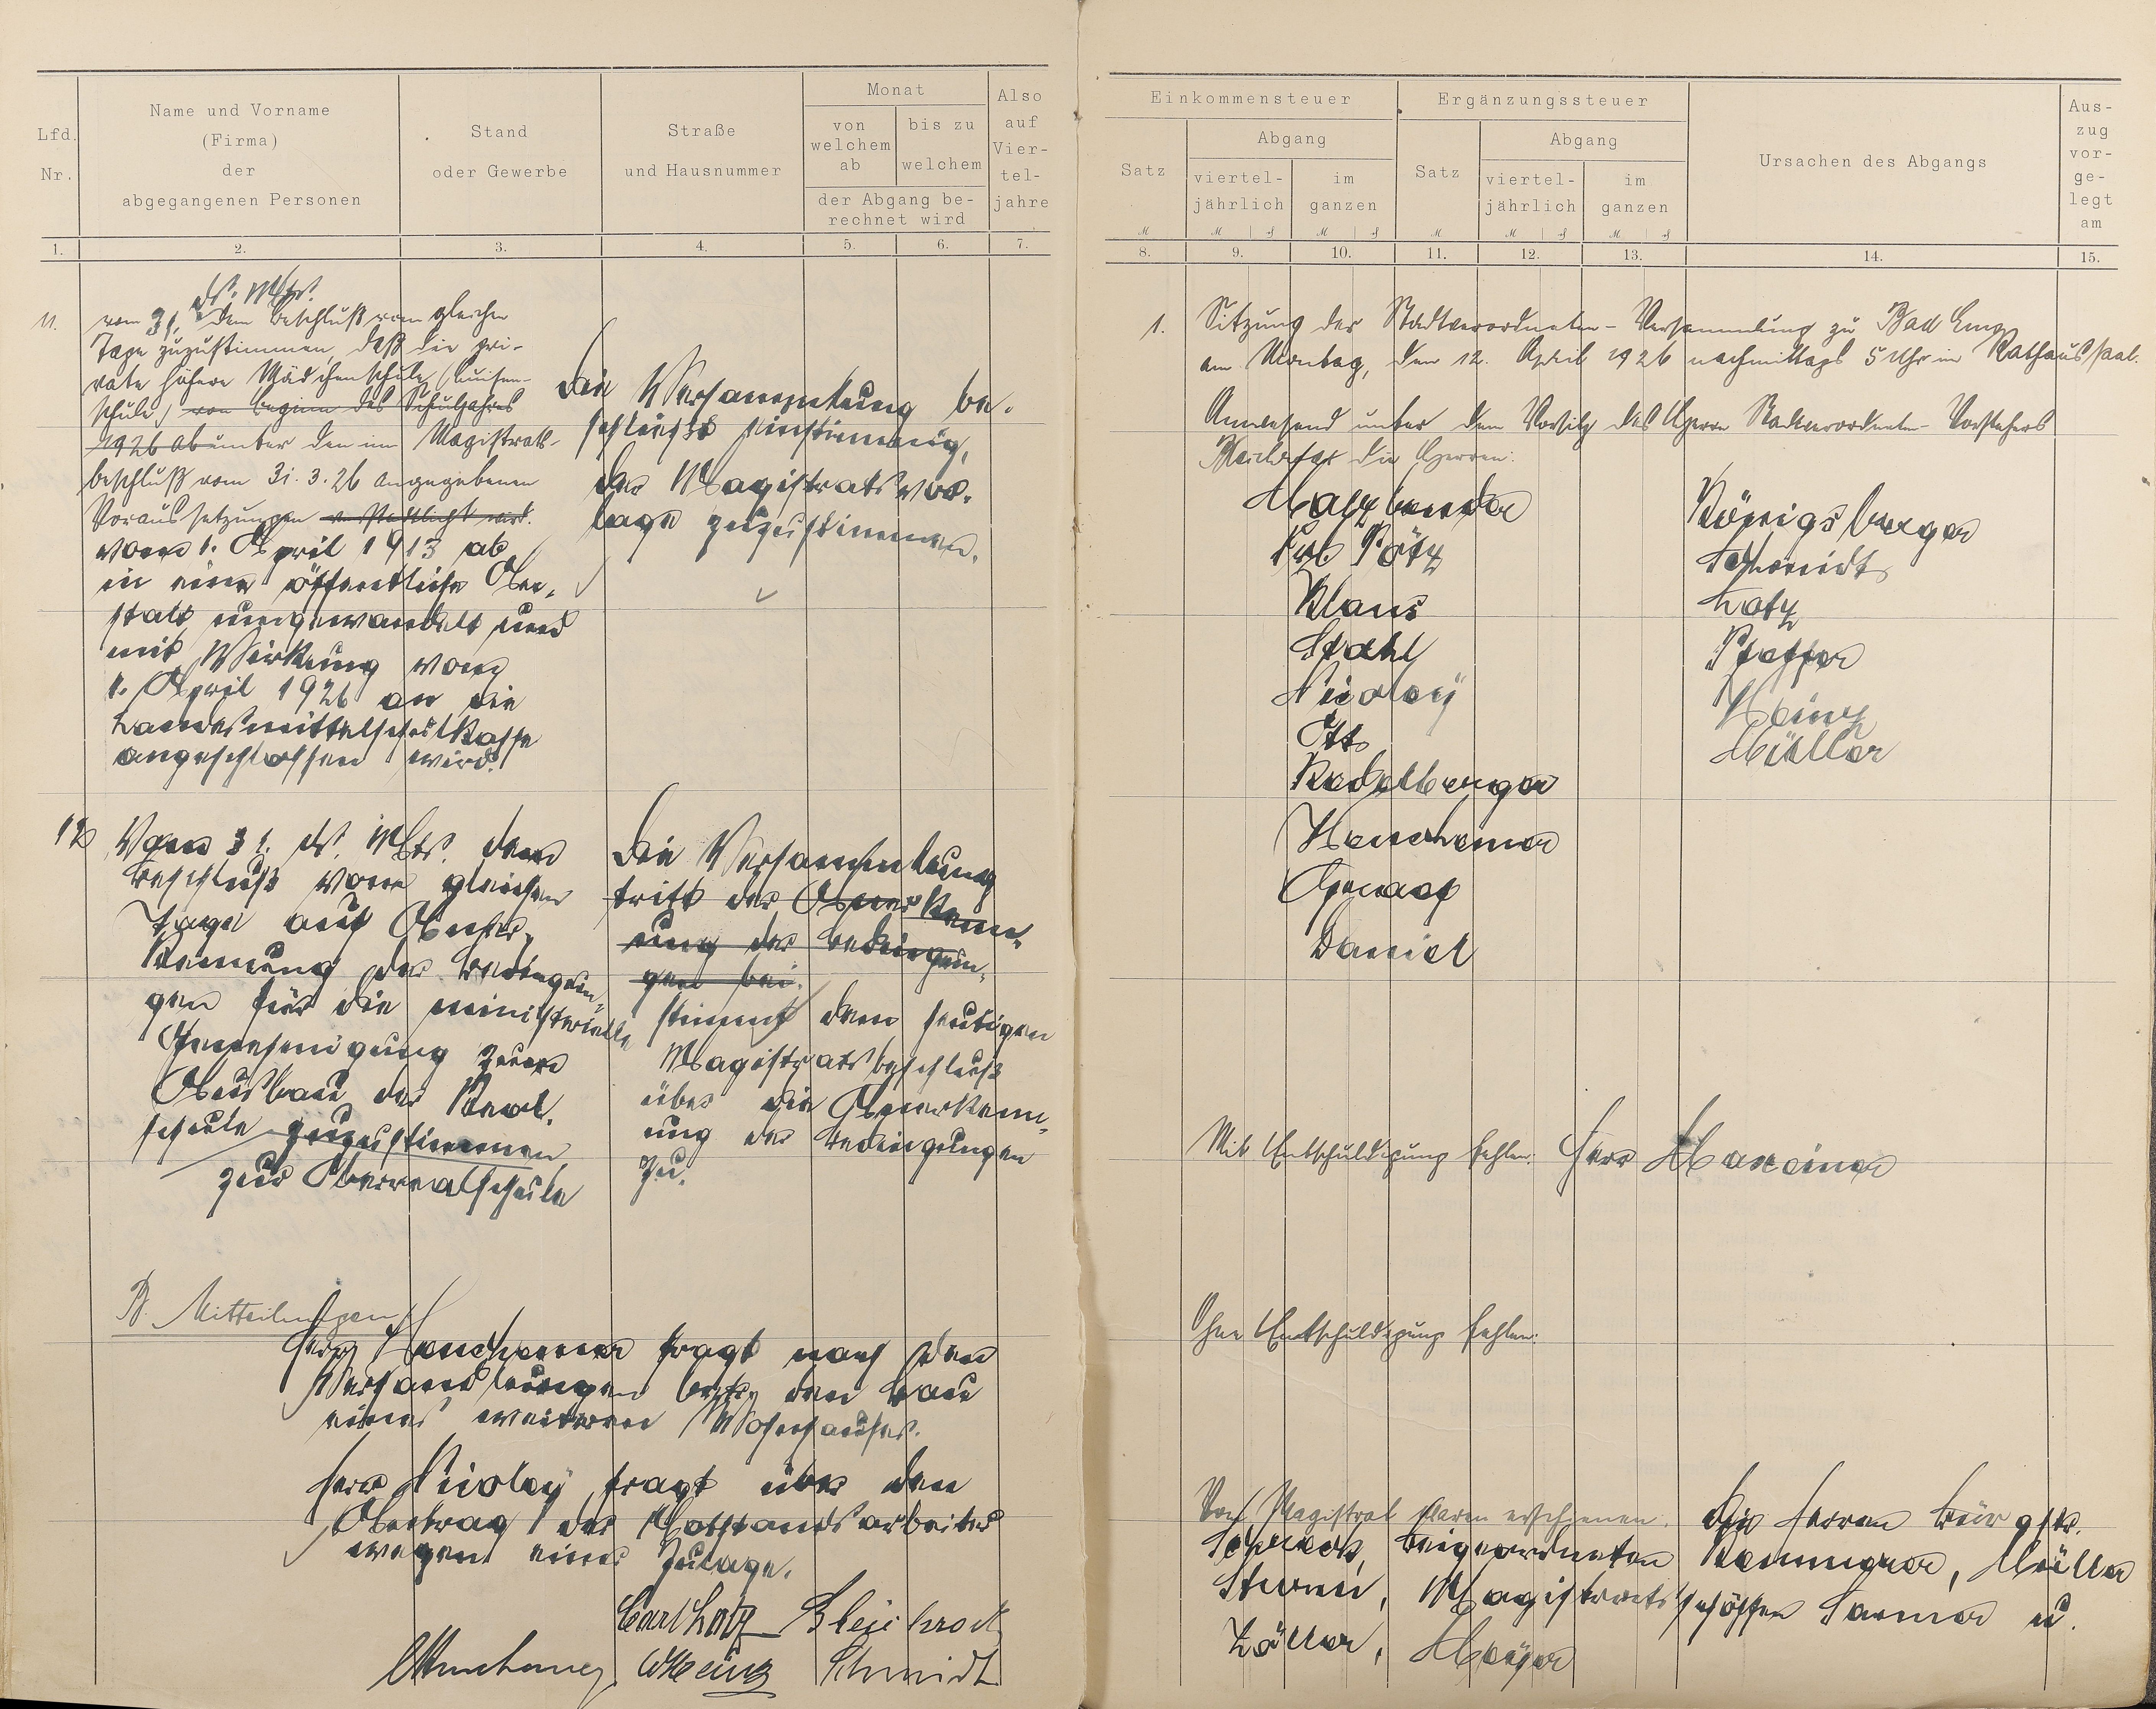 Lfd. Nr.
Name und Vorname
(Firma)
der
abgegangenen Personen
Stand
oder Gewerbe
Straße
und Hausnummer
Monat
von welchem ab
bis zu welchem
der Abgang be-
rechnet wird
Also auf Vier-
tel-
jahre
1. 2. 3. 4. 5. 6. 7.
ds. Mts.
11. vom 31. dem Beschluß vom gleichen
Tage zuzustimmen, daß die pri-
vate höhere Mädchenschule (Luisen-
schule) von Beginn des Schuljahres
1926 ab unter den im Magistrats-
beschluß vom 31.3.26 angegebenen
Voraussetzungen verstadtlicht wird.
vom 1. April 1913 ab
in eine öffentliche An-
stalt umgewandelt und
mit Wirkung vom
1. April 1926 an die
Landesmittelschulkasse
angeschlossen wird.
Die Versammlung be-
schließt einstimmig,
der Magistratsvor-
lage zuzustimmen.
12 Vom 31. ds. Mts. dem
Beschluß vom gleichen
Tage auf Aner-
kennung der Bedingun-
gen für die ministerielle
Genehmigung zum
Ausbau der Real-
schule zuzustimmen
zur Oberrealschule
Die Versammlung
tritt der Anerkenn-
ung der Bedingun-
gen bei.
stimmt dem heutigen
Magistratsbeschluß
über die Anerkenn-
ung der Bedingungen
zu.
B. Mitteilungen
Herr Henchemer fragt nach den
Verhandlungen betr. den Bau
eines weiteren Wohnhauses.
Herr Nicolay fragt über den
Antrag der Notstandsarbeiter
wegen einer Zulage.
Carl Lotz Bleichrodt
Henchemer W Heinz Schmidt
Einkommensteuer
Satz
Abgang
viertel-
jährlich
im
ganzen
Ergänzungssteuer
Satz
Abgang
viertel-
jährlich
im
ganzen
Ursachen des Abgangs
Aus-
zug
vor-
ge-
legt
am
8. 9. 10. 11. 12. 13. 14. 15.
1. Sitzung der Stadtverordneten-Versammlung zu Bad Ems
am Montag, den 12. April 1926 nachmittags 5 Uhr im Rathaussaal.
Anwesend unter dem Vorsitz des Herrn Stadtverordneten-Vorstehers
die Herren:
Königsberger
Schmidt
Klaus Lotz
Stahl Pfeffer
Nicolay Heinz
Ott Müller
Henchemer
Daniel
Mit Entschuldigung fehlen: Herr Maxeiner
Ohne Entschuldigung fehlen:
Vom Magistrat waren erschienen: die Herren Bürgstr.
Schreck, Beigeordneten Kemmerer, Müller
Sturm, Magistratsschöffen Sarner u.
Zöller, Meyer